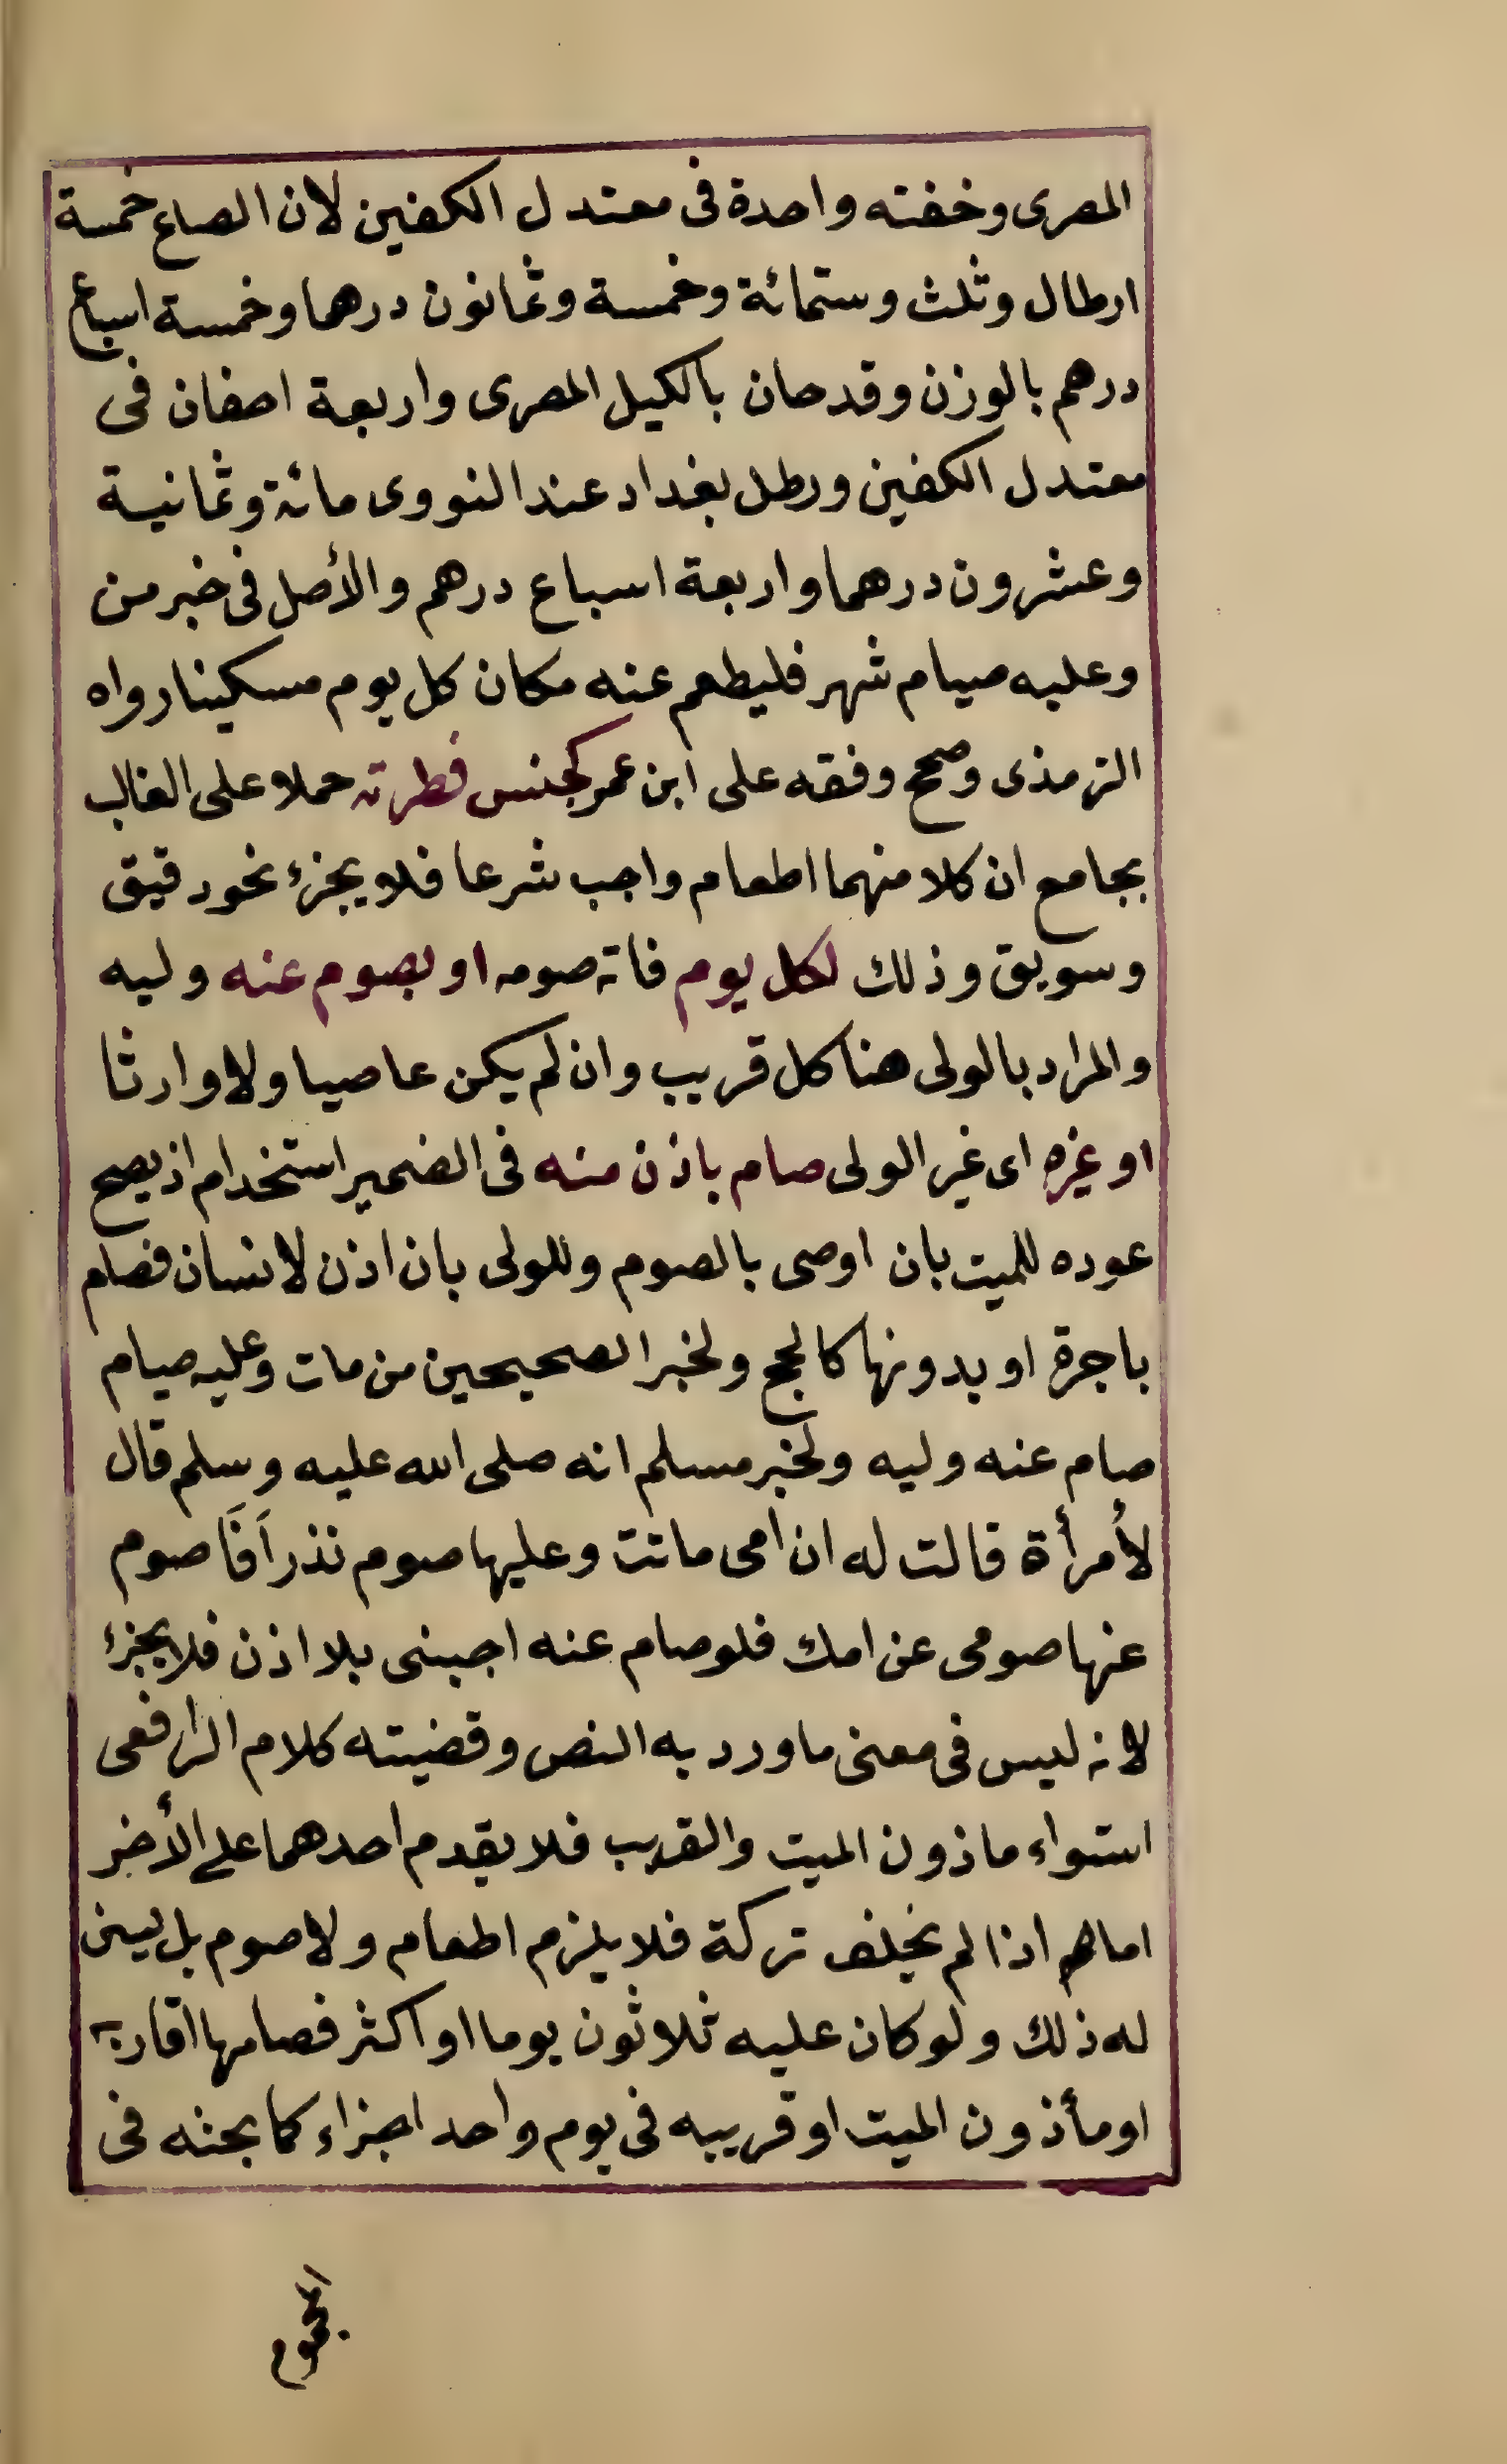 المصرى وخفته واحدة فى معتدل الكفين لان الصاع خمسة
ارطال وثلث وستمائة وخمسة وثمانون درهما وخمسة اسباع
درهم بالوزن وقدحان بالكيل المصرى واربعة احفان فى
معتدل الكفين ورطل بغداد عند النووى مائة وثمانية
وعشرون درهما واربعة اسباع درهم والأصل فى خبر من
وعليه صيام شهر فليطعم عنه مكان كل يوم مسكينا رواه
الترمذى وصحح وفقه على ابن عمر كجنس فطرته حملا على الغالب
بجامع ان كلا منهما اطعام واجب شرعا فلا يجزء نحو دقيق
وسويق وذلك لكل يوم فاته صومه او يصوم عنه وليه
والمراد بالولى هنا كل قريب وان لم يكن عاصيا ولا وارثا
او غيره اى غير الولى صام باذن منه فى الضمير استخدام اذ يصح
عوده للميت بان اوصى بالصوم وللولى بان اذن لانسان فصام
باجرة او بدونها كالحج ولخبر الصحيحين من مات وعليه صيام
صام عنه وليه ولخبر مسلم انه صلى الله عليه وسلم قال
لأمرأة قالت له ان امى ماتت وعليها صوم نذر آفأصوم
عنها صومى عن امك فلو صام عنه اجبنى بلا اذن فلا يجزئ
لانه ليس فى معنى ما ورد به النص وقضيته كلام الرافعى
استواء ماذون الميت والقريب فلا يقدم احدهما على الأخر
اما اذا لم يخلف تركة فلا يلزم اطعام ولا صوم بل يسن
له ذلك ولو كان عليه ثلاثون يوما او اكثر فصامها اقاربه
او مأذون الميت او قريبه فى يوم واحد اجزاء كما بحثه فى